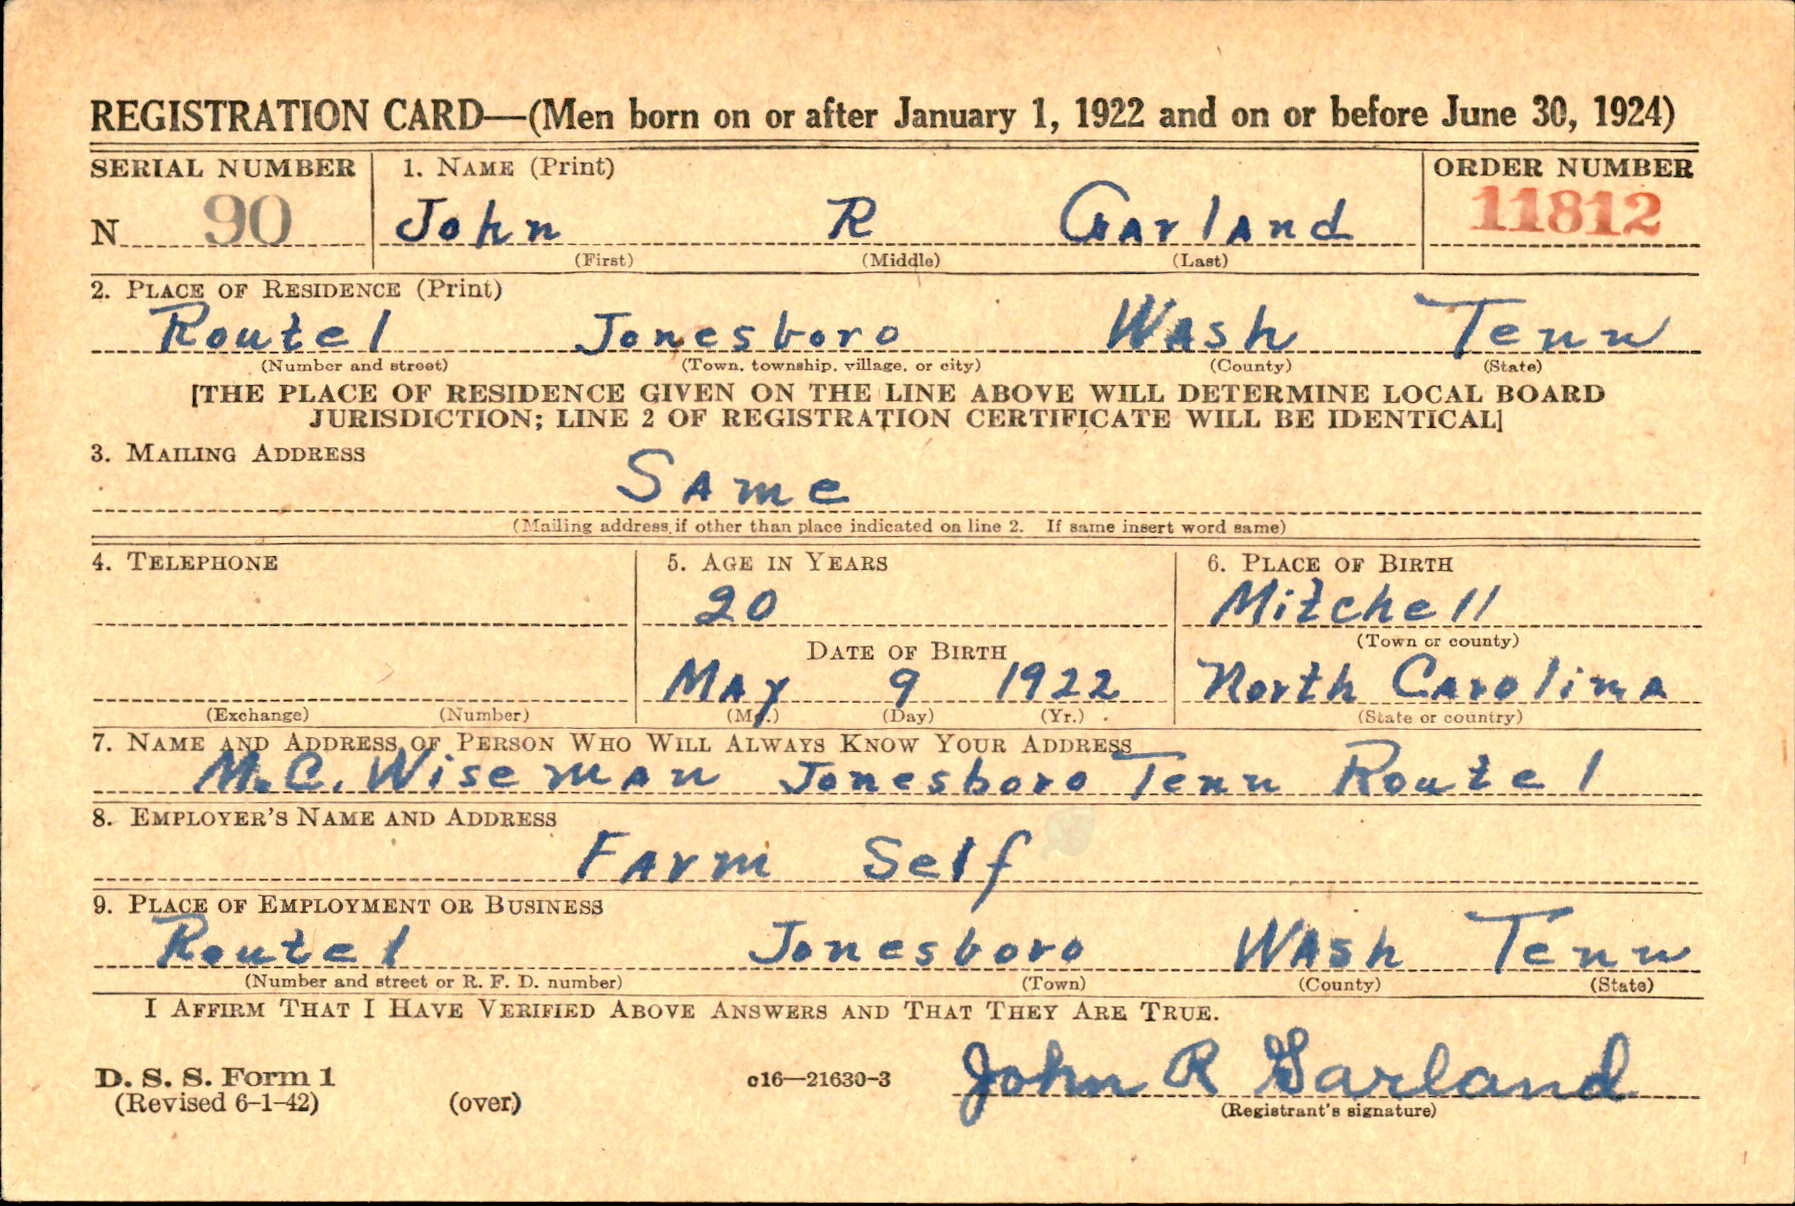 REGISTRATION CARD—(Men born on or after January 1, 1922 and on or before June 30, 1924)
SERIAL NUMBER 1. NAME (Print) ORDER NUMBER
N 90 John R Garland 11812
(First) (Middle) (Last)
2. PLACE OF RESIDENCE (Print)
Route 1 Jonesboro Wash Tenn
(Number and street) (Town, township, village, or city) (County) (State)
[THE PLACE OF RESIDENCE GIVEN ON THE LINE ABOVE WILL DETERMINE LOCAL BOARD
JURISDICTION; LINE 2 OF REGISTRATION CERTIFICATE WILL BE IDENTICAL]
3. MAILING ADDRESS
Same
(Mailing address if other than place indicated on line 2. If same insert word same)
4. TELEPHONE 5. AGE IN YEARS 6. PLACE OF BIRTH
20 Mitchell
(Town or county)
DATE OF BIRTH
May 9 1922 North Carolina
(Exchange) (Number) (Mo.) (Day) (Yr.) (State or country)
7. NAME AND ADDRESS OF PERSON WHO WILL ALWAYS KNOW YOUR ADDRESS
M.C. Wiseman Jonesboro Tenn Route 1
8. EMPLOYER'S NAME AND ADDRESS
Farm Self
9. PLACE OF EMPLOYMENT OR BUSINESS
Route 1 Jonesboro Wash Tenn
(Number and street or R. F. D. number) (Town) (County) (State)
I AFFIRM THAT I HAVE VERIFIED ABOVE ANSWERS AND THAT THEY ARE TRUE.
D. S. S. Form 1
(Revised 6-1-42) (over) c16—21630-3 John R Garland
(Registrant's signature)